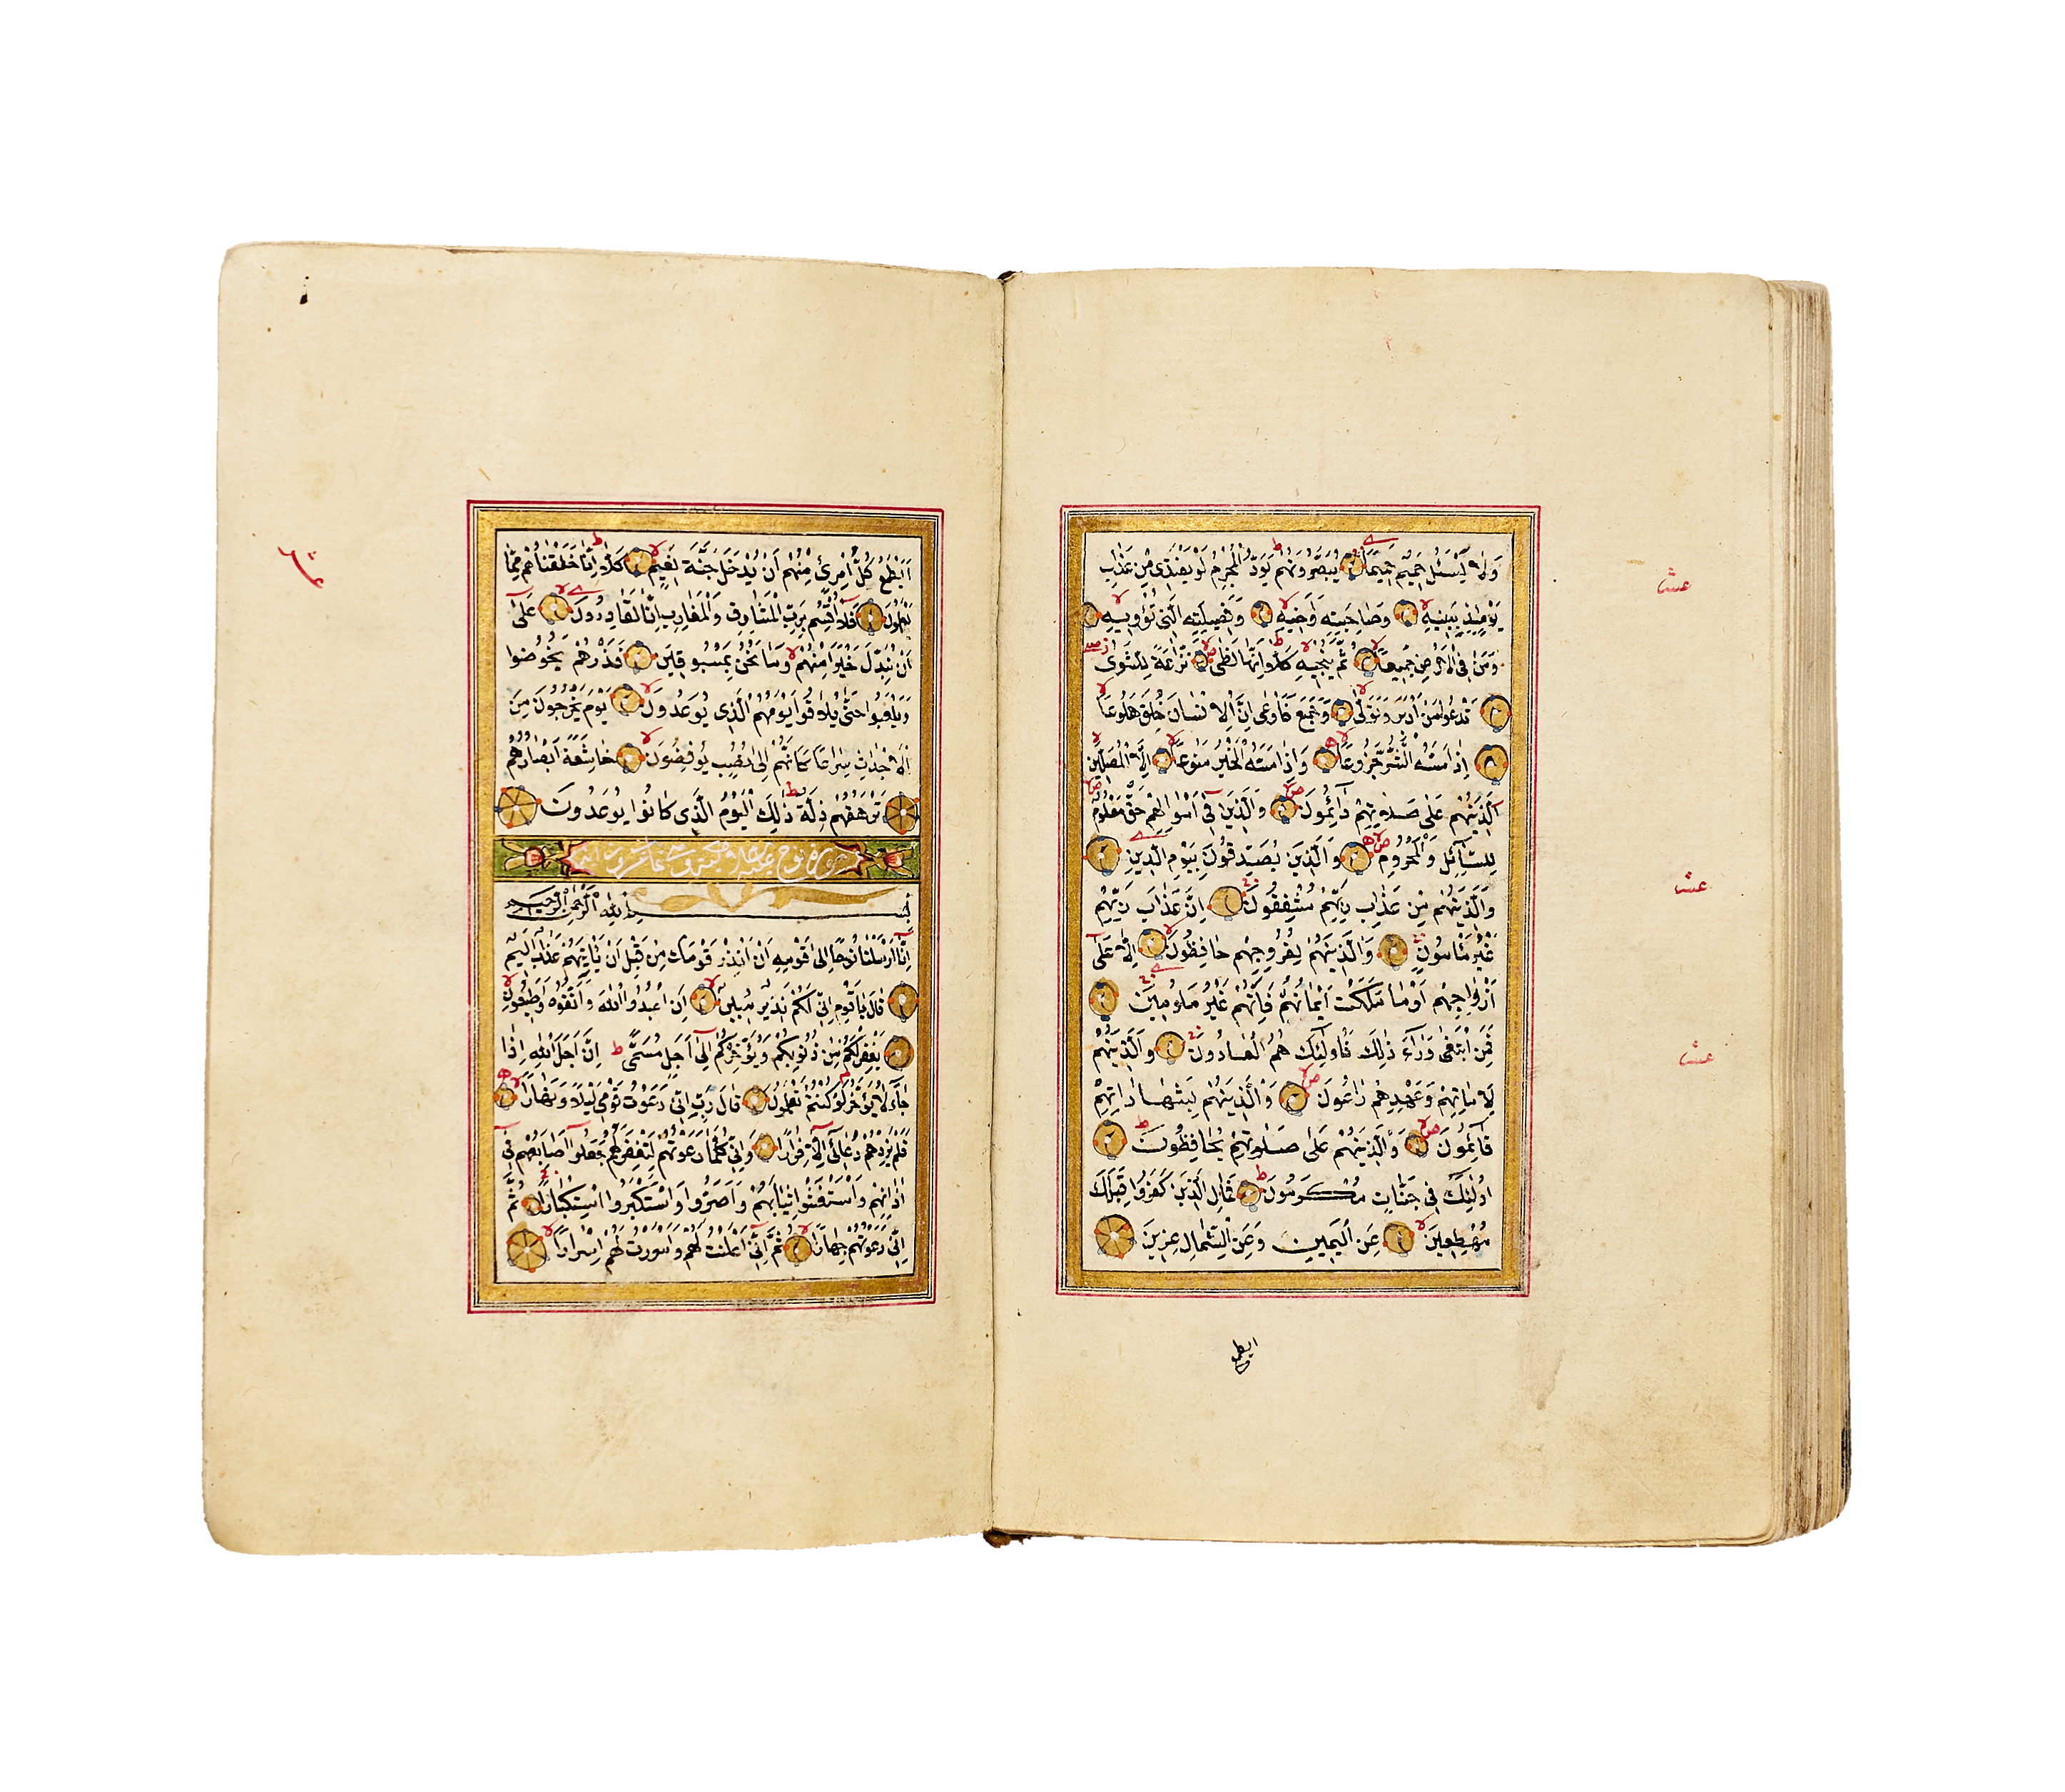 وَلَا يَسْئَلُ حَمِيمٌ حَمِيمًا يُبَصَّرُونَهُمْ يَوَدُّ الْمُجْرِمُ لَوْ يَفْتَدِى مِنْ عَذَابِ
يَوْمِئِذٍ بِبَنِيهِ وَصَاحِبَتِهِ وَاَخِيهِ وَفَصِيلَتِهِ الَّتِى تُؤْوِيهِ
وَمَنْ فِى الْاَرْضِ جَمِيعًا ثُمَّ يُنْجِيهِ كَلَّا اِنَّهَا لَظَى نَزَّاعَةً لِلشَّوَى
تَدْعُوا مَنْ اَدْبَرَ وَتَوَلَّى وَجَمَعَ فَاَوْعَى اِنَّ الْاِنْسَانَ خُلِقَ هَلُوعًا
اِذَا مَسَّهُ الشَّرُّ جَزُوعًا وَاِذَا مَسَّهُ الْخَيْرُ مَنُوعًا اِلَّا الْمُصَلِّينَ
اَلَّذِينَهُمْ عَلَى صَلَاتِهِمْ دَائِمُونَ وَالَّذِينَ فِى اَمْوَالِهِمْ حَقٌّ مَعْلُومٌ
لِلسَّائِلِ وَالْمَحْرُومِ وَالَّذِينَ يُصَدِّقُونَ بِيَوْمِ الدِّينِ
وَالَّذِينَهُمْ مِنْ عَذَابِ رَبِّهِمْ مُشْفِقُونَ اِنَّ عَذَابَ رَبِّهِمْ
غَيْرُ مَأْمُونٍ وَالَّذِينَهُمْ لِفُرُوجِهِمْ حَافِظُونَ اِلَّا عَلَى
اَزْوَاجِهِمْ اَوْ مَا مَلَكَتْ اَيْمَانُهُمْ فَاِنَّهُمْ غَيْرُ مَلُومِينَ
فَمَنِ ابْتَغَى وَرَاءَ ذَلِكَ فَاُولَئِكَ هُمُ الْعَادُونَ وَالَّذِينَهُمْ
لِاَمَانَاتِهِمْ وَعَهْدِهِمْ رَاعُونَ وَالَّذِينَهُمْ بِشَهَادَاتِهِمْ
قَائِمُونَ وَالَّذِينَهُمْ عَلَى صَلَاتِهِمْ يُحَافِظُونَ
اُولَئِكَ فِى جَنَّاتٍ مُكْرَمُونَ فَمَالِ الَّذِينَ كَفَرُوا قِبَلَكَ
مُهْطِعِينَ عَنِ الْيَمِينِ وَعَنِ الشِّمَالِ عِزِينَ
ايطمع
عشر
عشر
عشر
اَيَطْمَعُ كُلُّ امْرِئٍ مِنْهُمْ اَنْ يُدْخَلَ جَنَّةَ نَعِيمٍ كَلَّا اِنَّا خَلَقْنَاهُمْ مِمَّا
يَعْلَمُونَ فَلَا اُقْسِمُ بِرَبِّ الْمَشَارِقِ وَالْمَغَارِبِ اِنَّا لَقَادِرُونَ عَلَى
اَنْ نُبَدِّلَ خَيْرًا مِنْهُمْ وَمَا نَحْنُ بِمَسْبُوقِينَ فَذَرْهُمْ يَخُوضُوا
وَيَلْعَبُوا حَتَّى يُلَاقُوا يَوْمَهُمُ الَّذِى يُوعَدُونَ يَوْمَ يَخْرُجُونَ مِنَ
الْاَجْدَاثِ سِرَاعًا كَاَنَّهُمْ اِلَى نُصُبٍ يُوفِضُونَ خَاشِعَةً اَبْصَارُهُمْ
تَرْهَقُهُمْ ذِلَّةٌ ذَلِكَ الْيَوْمُ الَّذِى كَانُوا يُوعَدُونَ
سورة نوح
بِسْمِ اللّٰهِ الرَّحْمٰنِ الرَّحِيمِ
اِنَّا اَرْسَلْنَا نُوحًا اِلَى قَوْمِهِ اَنْ اَنْذِرْ قَوْمَكَ مِنْ قَبْلِ اَنْ يَأْتِيَهُمْ عَذَابٌ اَلِيمٌ
قَالَ يَا قَوْمِ اِنِّى لَكُمْ نَذِيرٌ مُبِينٌ اَنِ اعْبُدُوا اللّٰهَ وَاتَّقُوهُ وَاَطِيعُونِ
يَغْفِرْ لَكُمْ مِنْ ذُنُوبِكُمْ وَيُؤَخِّرْكُمْ اِلَى اَجَلٍ مُسَمًّى اِنَّ اَجَلَ اللّٰهِ اِذَا
جَاءَ لَا يُؤَخَّرُ لَوْ كُنْتُمْ تَعْلَمُونَ قَالَ رَبِّ اِنِّى دَعَوْتُ قَوْمِى لَيْلًا وَنَهَارًا
فَلَمْ يَزِدْهُمْ دُعَائِى اِلَّا فِرَارًا وَاِنِّى كُلَّمَا دَعَوْتُهُمْ لِتَغْفِرَ لَهُمْ جَعَلُوا اَصَابِعَهُمْ فِى
اٰذَانِهِمْ وَاسْتَغْشَوْا ثِيَابَهُمْ وَاَصَرُّوا وَاسْتَكْبَرُوا اسْتِكْبَارًا ثُمَّ
اِنِّى دَعَوْتُهُمْ جِهَارًا ثُمَّ اِنِّى اَعْلَنْتُ لَهُمْ وَاَسْرَرْتُ لَهُمْ اِسْرَارًا
عشر